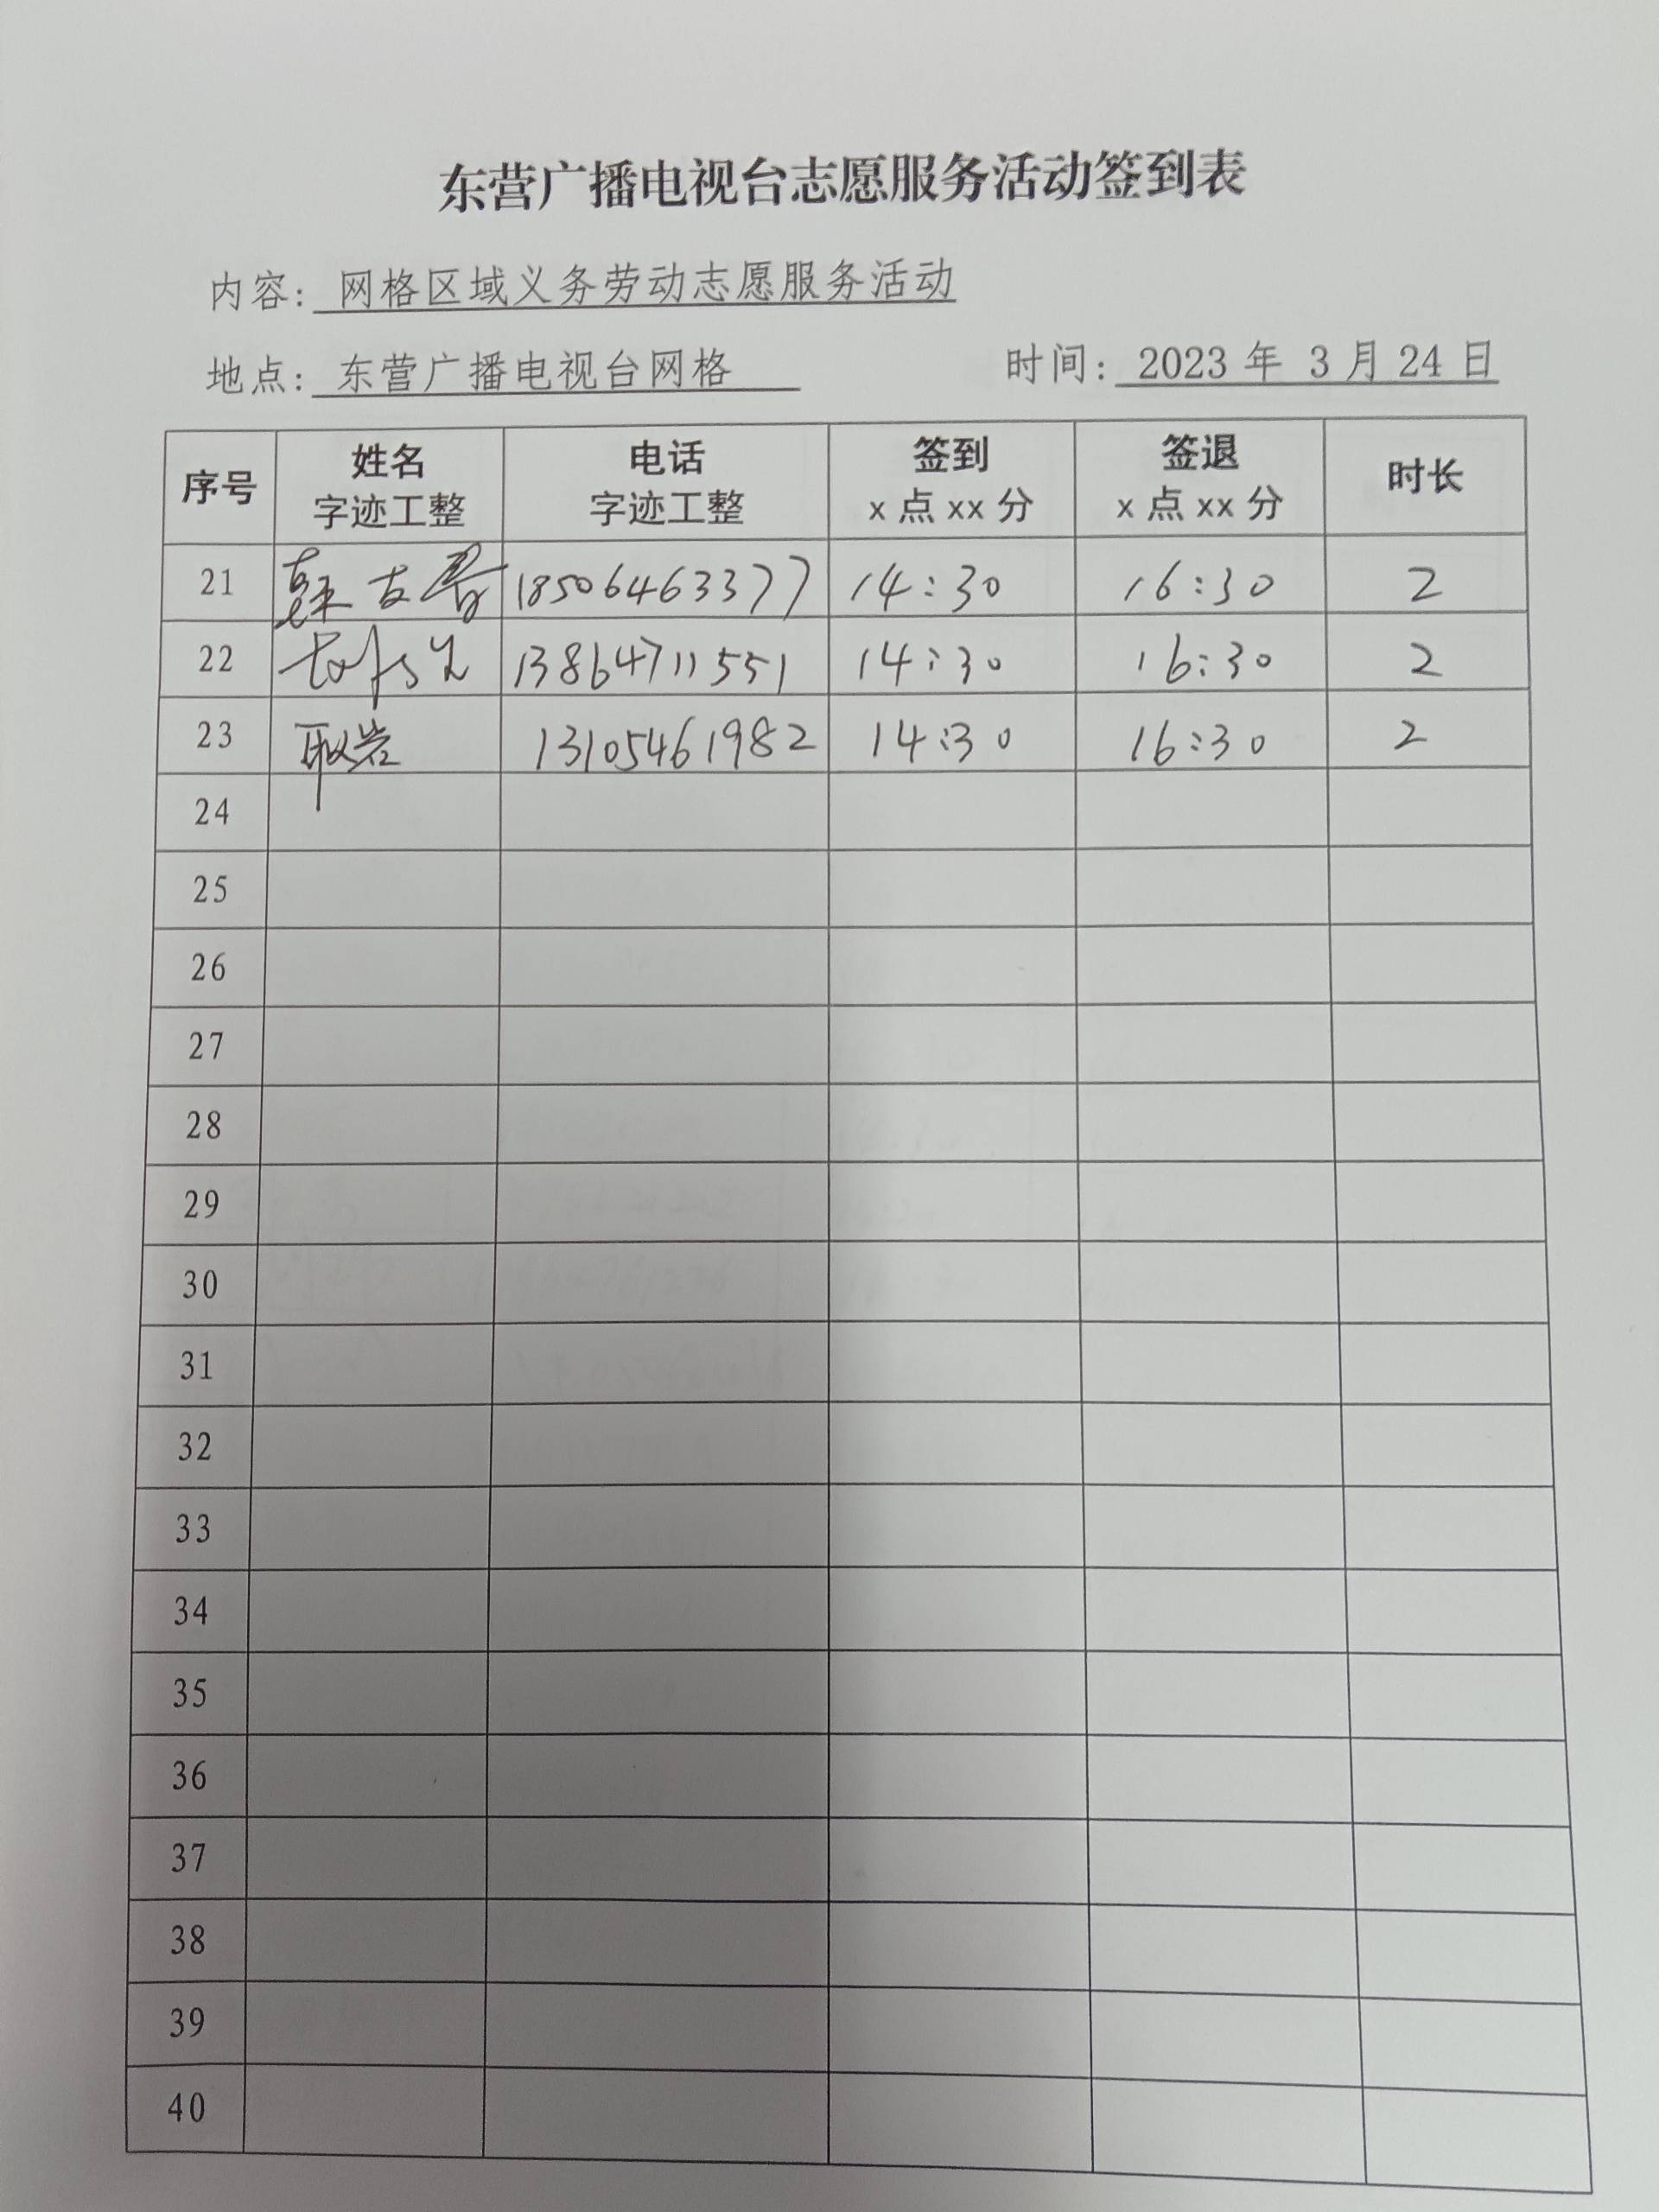 东营广播电视台志愿服务活动签到表
内容: 网格区域义务劳动志愿服务活动
地点: 东营广播电视台网格 时间: 2023 年 3 月 24 日
序号 姓名 字迹工整 电话 字迹工整 签到 x 点 xx 分 签退 x 点 xx 分 时长
21 18506463377 14:30 16:30 2
22 13864711551 14:30 16:30 2
23 岩 13105461982 14:30 16:30 2
24
25
26
27
28
29
30
31
32
33
34
35
36
37
38
39
40